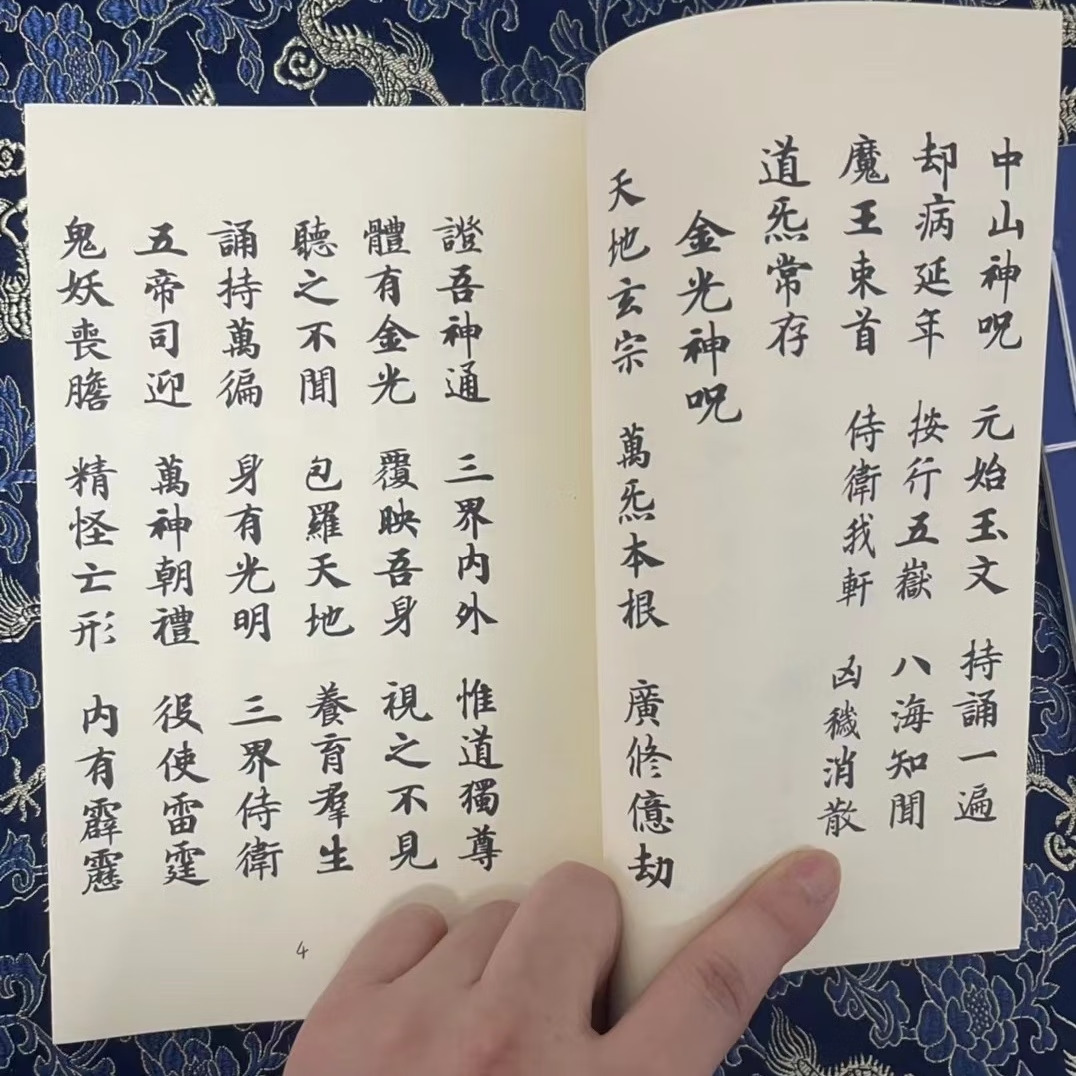 中山神呪 元始玉文 持誦一遍
却病延年 按行五嶽 八海知聞
魔王束首 侍衛我軒 凶穢消散
道炁常存
金光神呪
天地玄宗 萬炁本根 廣修億劫
證吾神通 三界内外 惟道獨尊
體有金光 覆映吾身 視之不見
聽之不聞 包羅天地 養育羣生
誦持萬徧 身有光明 三界侍衛
五帝司迎 萬神朝禮 役使雷霆
鬼妖喪膽 精怪亡形 内有霹靂
4